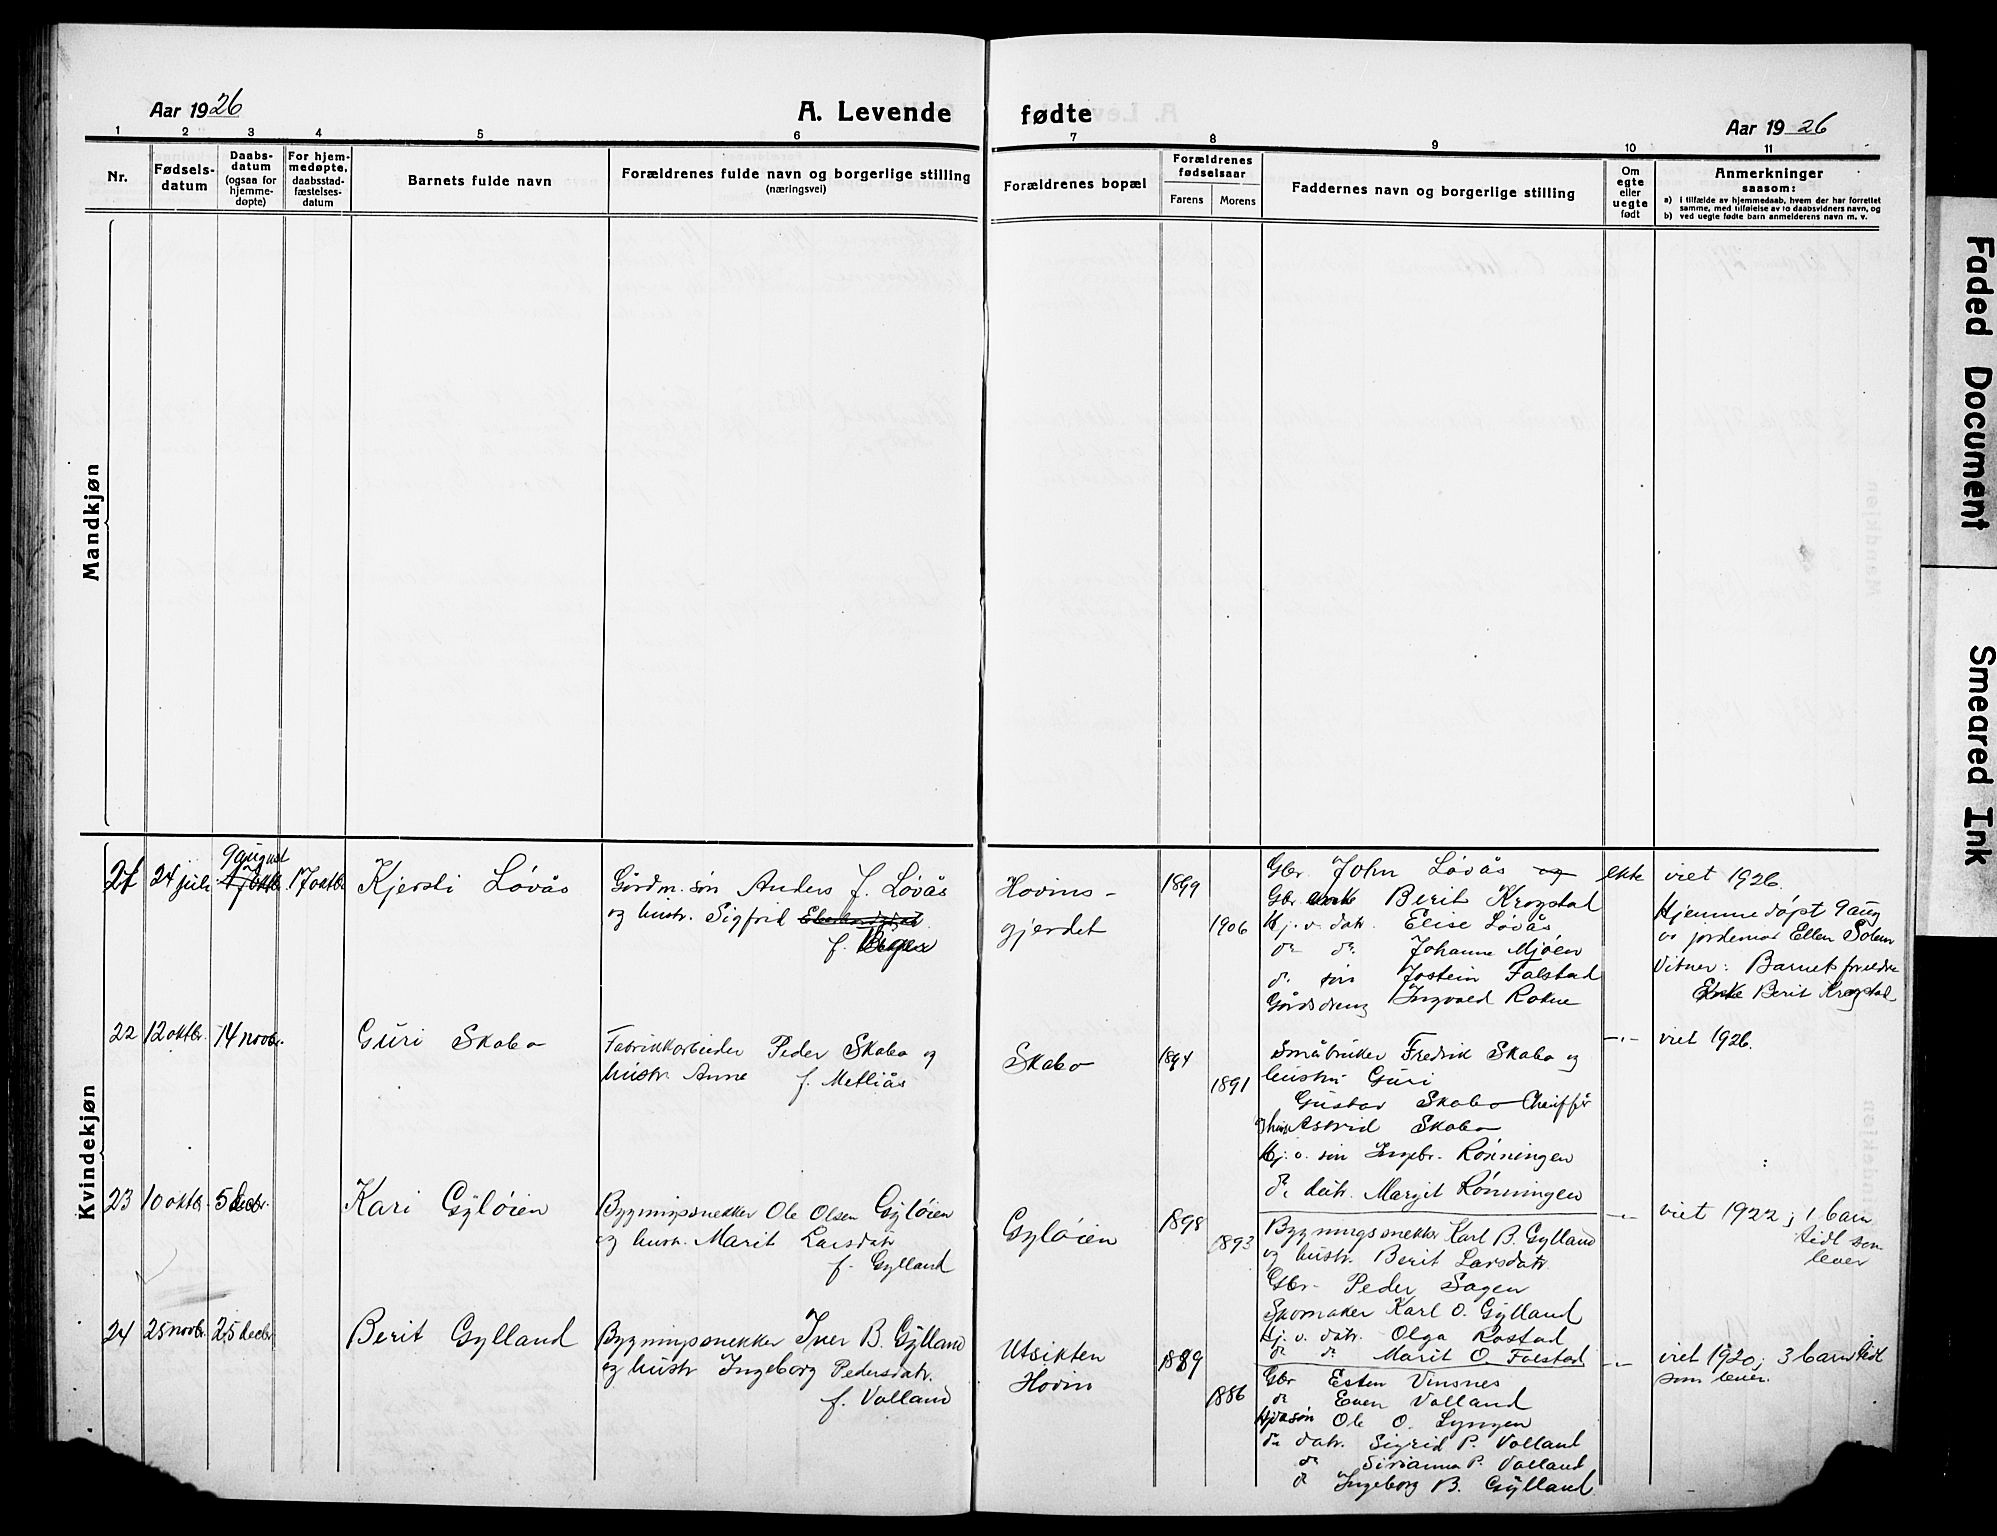 Aar 1926
A. Levende fødte
Aar 1926
1 2 3 4 5 6 7 8 9 10 11
Nr.
Fødsels-
datum
Daabs-
datum
(ogsaa for
hjemme-
døpte)
For hjem-
medøpte,
daabsstad-
fæstelses-
datum
Barnets fulde navn
Forældrenes fulde navn og borgerlige stilling
(næringsvei)
Forældrenes bopæl
Forældrenes
fødselsaar
Farens
Morens
Faddernes navn og borgerlige stilling
Om
egte
eller
uegte
født
Anmerkninger
saasom:
a) I tilfælde av hjemmedaab, hvem der har forrettet
samme, med tilføielse av to daabsvidners navn, og
b) ved uegte fødte barn anmelderens navn m. v.
Mandkjøn
Kvindekjøn
21
24 juli
9 august
17 oktbr.
17 oktbr.
Kjersti Løvås
Gårdm. søn Anders J. Løvås
og hustr. Sigfrid
f.
Hovins-
gjerdet
1899
1906
Gbr. John Løvås og
Gbr. enke Berit Krogstad
Kj. v. datr. Elise Løvås
do do Johanne Mjøen
do søn Jostein Folstad
Gårdsdreng Ingvald Rokne
ekte
viet 1926.
Hjemmedøpt 9 aug
av jordemor Ellen Solem
Vitner: Barnets foreldre
Enke Berit Krogstad
22
12 oktbr.
14 novbr.
Guri Skabo
Fabrikkarbeider Peder Skabo og
hustr. Anne f. Metliås
Skabo
1894
1891
Småbruker Fredrik Skabo og
hustru Guri
Gustav Skabo Chauffør
og hustr. Astrid Skabo
Kj. v. søn Ingebr. Rønningen
do datr. Margit Rønningen
-"-
viet 1926.
23
10 oktbr.
5 decbr.
Kari Gyløien
Bygningssnekker Ole Olsen Gyløien
og hustr. Marit Larsdatr
f. Gylland
Gyløien
1898
1893
Bygningssnekker Karl B. Gylland
og hustr. Berit Larsdatr.
Gbr. Peder Sagen
Skomaker Karl O. Gylland
Kj. v. datr. Olga Rostad
do do Marit O. Folstad
-"-
viet 1922; 1 barn
tidl som
lever
24
25 novbr.
25 decbr.
Berit Gylland
Bygningssnekker Iver B. Gylland
og hustr Ingeborg Pedersdatr.
f. Volland
Utsikten
Hovin
1889
1886
Gbr Esten Vinsnes
do Even Volland
Kj. v. søn Ole O. Lyngen
do datr. Sigrid P. Volland
do Sivianna P. Volland
do Ingeborg B. Gylland
-"-
viet 1920; 3 barn tidl
som lever.
Faded Document
Smeared Ink